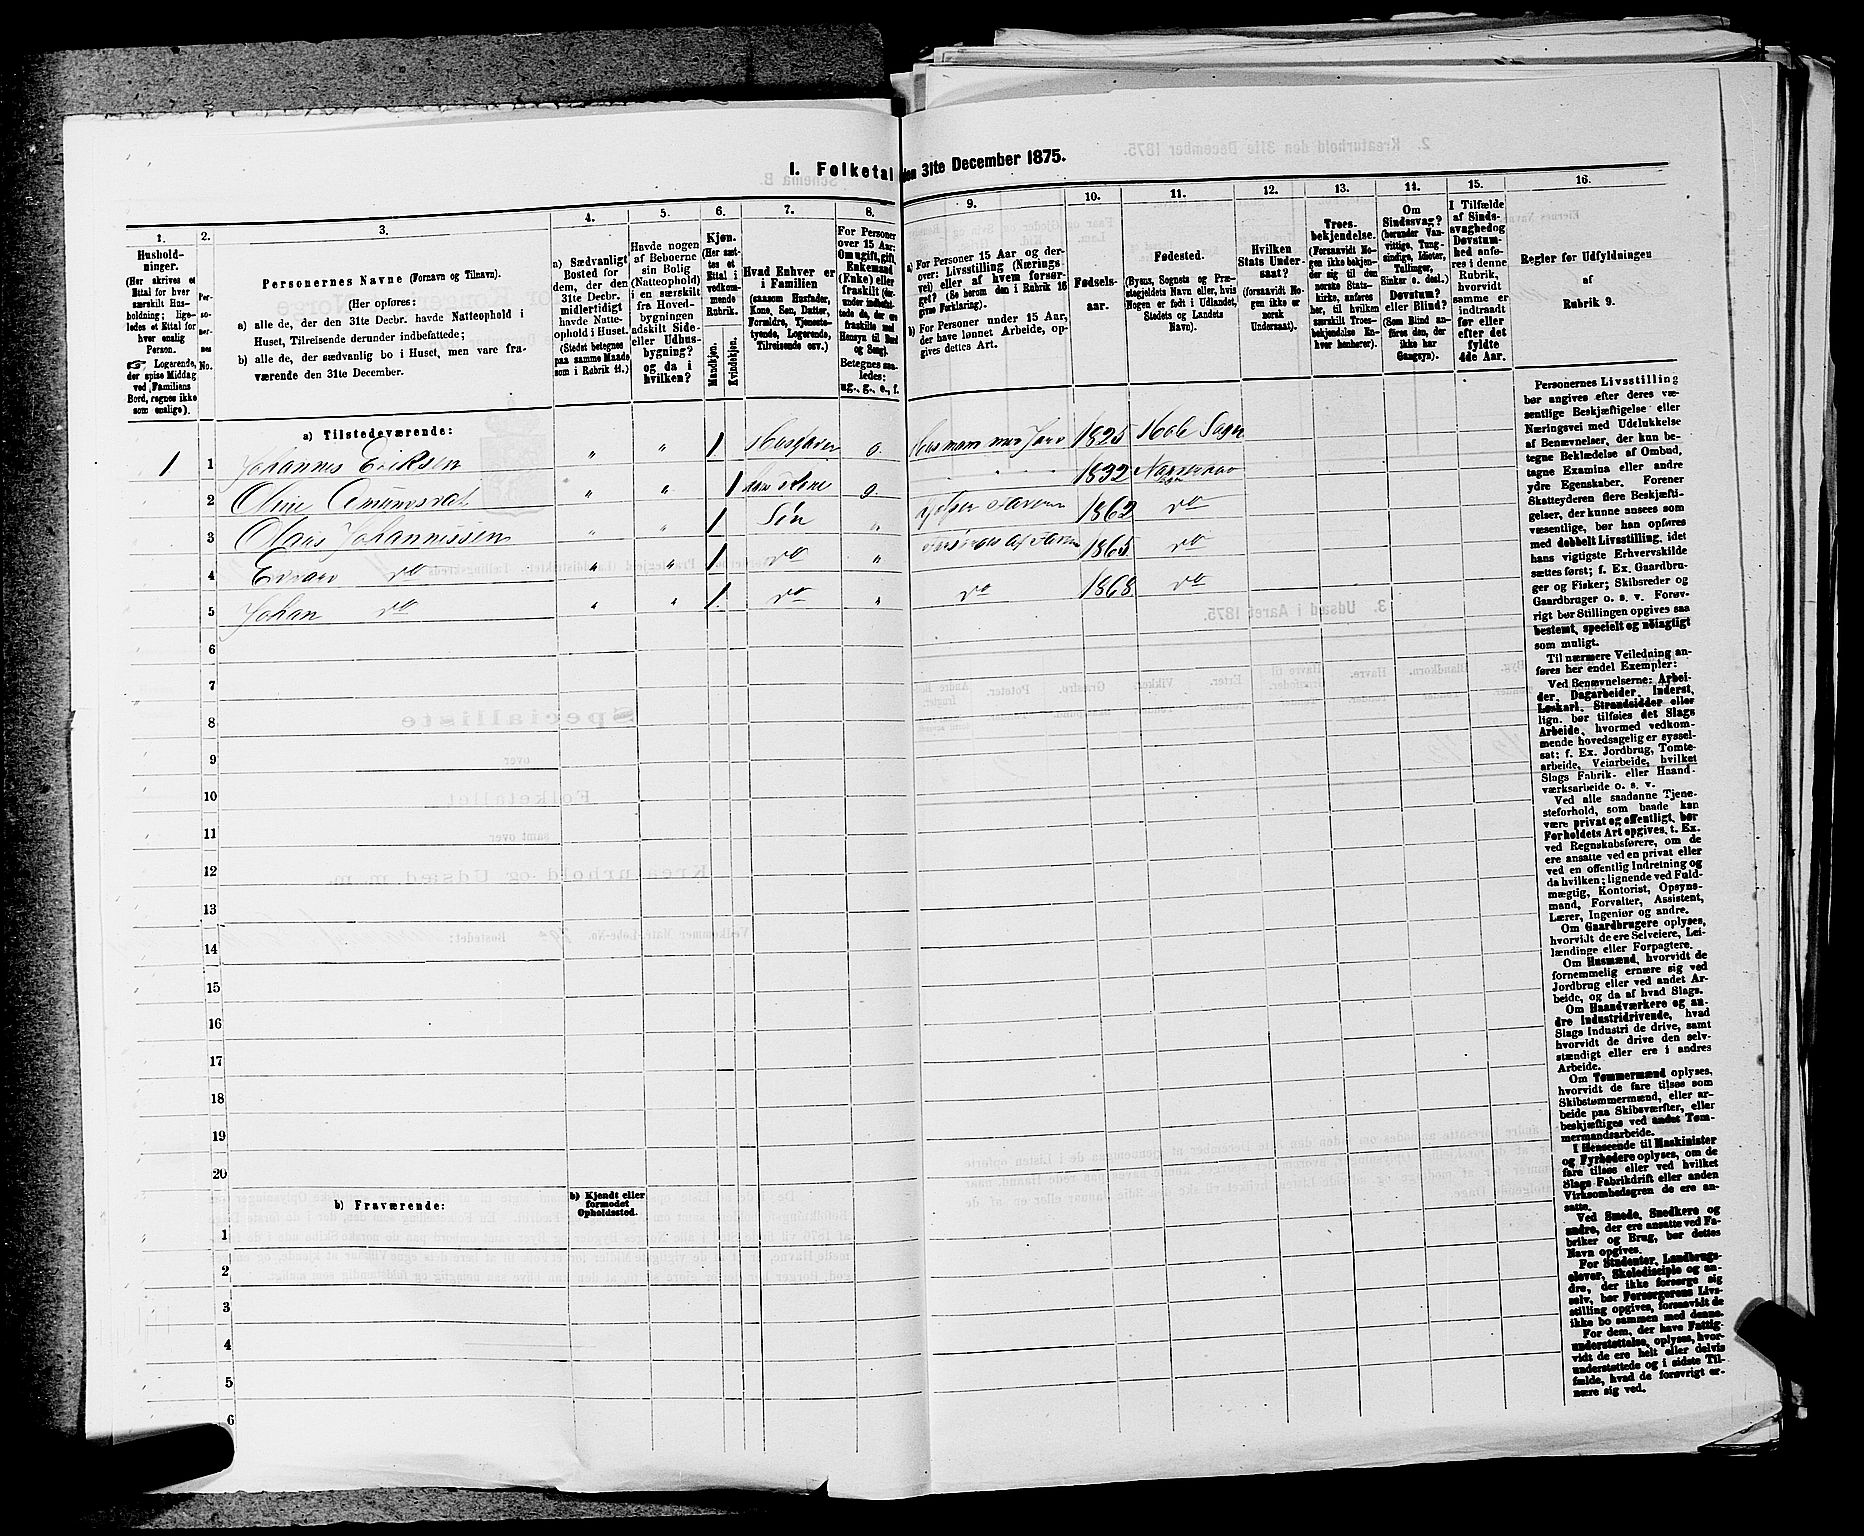 I. Folketal den 31te December 1875.
1.
2.
3.
4.
5.
6.
7.
8.
9.
10.
11.
12.
13.
14.
15.
16.
Hushold-
ninger.
(Her skrives et
Ettal for hver
særskilt Hus-
holdning; lige-
ledes et Ettal for
hver enslig
Person.
☞ Logerende,
der spise Middag
ved Familiens
Bord, regnes ikke
som enslige).
Per-
so-
ner-
nes
No.
Personernes Navne (Fornavn og Tilnavn).
(Her opføres:
a) alle de, der den 31te Decbr. havde Natteophold i
Huset, Tilreisende derunder indbefattede;
b) alle de, der sædvanlig bo i Huset, men vare fra-
værende den 31te December.
a) Sædvanligt
Bosted for
dem, der den
31te Decbr.
midlertidigt
havde Natte-
ophold i Huset.
(Stedet betegnes
paa samme Maade
som i Rubrik 11.)
Havde nogen
af Beboerne
sin Bolig
(Natteophold)
i en særskilt
fra Hoved-
bygningen
adskilt Side-
eller Udhus-
bygning?
og da i
hvilken?
Kjøn.
(Her sæt-
tes et
Ettal i
vedkom-
mende
Rubrik.
Mandkjøn.
Kvindekjøn.
Hvad Enhver er
i Familien
(saasom Husfader,
Kone, Søn, Datter,
Forældre, Tjeneste-
tyende, Logerende,
Tilreisende osv.)
For Personer
over 15 Aar:
Om ugift, gift,
Enkemand
(Enke) eller
fraskilt (der-
under indbefat-
tede de, der ere
fraskilte med
Hensyn til Bord
og Seng).
Betegnes saa-
ledes:
ug., g., e., f.
a) For Personer 15 Aar og der-
over: Livsstilling (Nærings-
vei) eller af hvem forsør-
get? (Se herom den i Rubrik 16
givne Forklaring).
b) For Personer under 15 Aar,
der have lønnet Arbeide, op-
gives dettes Art.
Fødsels-
aar.
Fødested.
(Byens, Sognets og Præ-
stegjeldets Navn eller, hvis
Nogen er født i Udlandet,
Stedets og Landets
Navn).
Hvilken
Stats Under-
saat?
(forsaavidt No-
gen ikke er
norsk
Undersaat).
Troes-
bekjendelse.
(Forsaavidt No-
gen ikke bekjen-
der sig til den
norske Stats-
kirke, anføres
her, til hvilken
særskilt Troes-
bekjendelse En-
hver henhører).
Om
Sindssvag?
(herunder Van-
vittige, Tung-
sindige, Idioter,
Tullinger,
Sinker o. desl.)
Døvstum?
eller Blind?
(Som Blind an-
føres den, der
ikke har
Gangsyn).
I Tilfælde
af Sinds-
svaghed og
Døvstum-
hed anfø-
res i denne
Rubrik,
hvorvidt
samme er
indtraadt
før eller
efter det
fyldte
4de Aar.
Regler for Udfyldningen
af
Rubrik 9.
a) Tilstedeværende:
1 1 Johannes Eriksen " " 1 Husfader g. Husmand med Jord 1825
2 " " 1 hans Kone g. " 1832
3 Johannissen " " 1 Søn " 1862 do
4 do " " 1 do " 1865 do
5 Johan do " " 1 do " do 1868 do
6
7
8
9
10
11
12
13
14
15
16
17
18
19
20
b) Fraværende:
b) Kjendt eller
formodet
Opholdssted.
1
2
3
4
5
6
Personernes Livsstilling
bør angives efter deres væ-
sentlige Beskjæftigelse eller
Næringsvei med Udelukkelse
af Benævnelser, der kun be-
tegne Beklædelse af Ombud,
tagne Examina eller andre
ydre Egenskaber. Forener
Skatteyderen flere Beskjæfti-
gelser, der kunne ansees som
væsentlige, bør han opføres
med dobbelt Livsstilling, idet
hans vigtigste Erhvervskilde
sættes først; f. Ex. Gaardbru-
ger og Fisker; Skibsreder og
Gaardbruger o. s. v. Forøv-
rigt bør Stillingen opgives saa
bestemt, specielt og nøiagtigt
som muligt.
Til nærmere Veiledning an-
føres her endel Exempler:
Ved Benævnelserne: Arbei-
der, Dagarbeider, Inderst,
Løskarl, Strandsidder eller
lign. bør tilføies det Slags
Arbeide, hvormed vedkom-
mende hovedsagelig er syssel-
sat; f. Ex. Jordbrug, Tomte-
arbeide, Veiarbeide, hvilket
Slags Fabrik- eller Haand-
værksarbeide o. s. v.
Ved alle saadanne Tjene-
steforhold, som baade kan
være privat og offentligt, bør
Forholdets Art opgives, t. Ex.
ved Regnskabsførere, om de
ere ansatte ved en privat eller
ved en offentlig Indretning og
da hvilken; lignende ved Fuld-
mægtig, Kontorist, Opsyns-
mand, Forvalter, Assistent,
Lærer, Ingeniør og andre.
Om Gaardbrugere oplyses,
hvorvidt de ere Selveiere, Lei-
lændinge eller Forpagtere.
Om Husmænd, hvorvidt de
fornemmelig ernære sig ved
Jordbrug eller ved andet Ar-
beide, og da af hvad Slags.
Om Haandværkere og an-
dre Industridrivende, hvad
Slags Industri de drive, samt
hvorvidt de drive den selv-
stændigt eller ere i andres
Arbeide.
Om Tømmermænd oplyses,
hvorvidt de fare tilsøs som
Skibstømmermænd, eller ar-
beide paa Skibsværfter, eller
beskjæftiges ved andet Tøm-
mermandsarbeide.
I Henseende til Maskinister
og Fyrbødere oplyses, om de
fare tilsøs eller ved hvilket
Slags Fabrikdrift eller anden
Virksomhedsgren de ere an-
satte.
Ved Smede, Snedkere og
andre, der ere ansatte ved Fa-
briker og Brug, bør dettes
Navn opgives.
For Studenter, Landbrugs-
elever, Skoledisciple og an-
dre, der ikke forsørge sig
selv, bør Forsørgerens Livs-
stilling opgives, forsaavidt de
ikke bo sammen med denne.
For dem, der have Fattig-
understøttelse, oplyses, hvor-
vidt de ere helt eller delvis
understøttede og i sidste Til-
fælde, hvad de forøvrigt er-
nære sig ved.